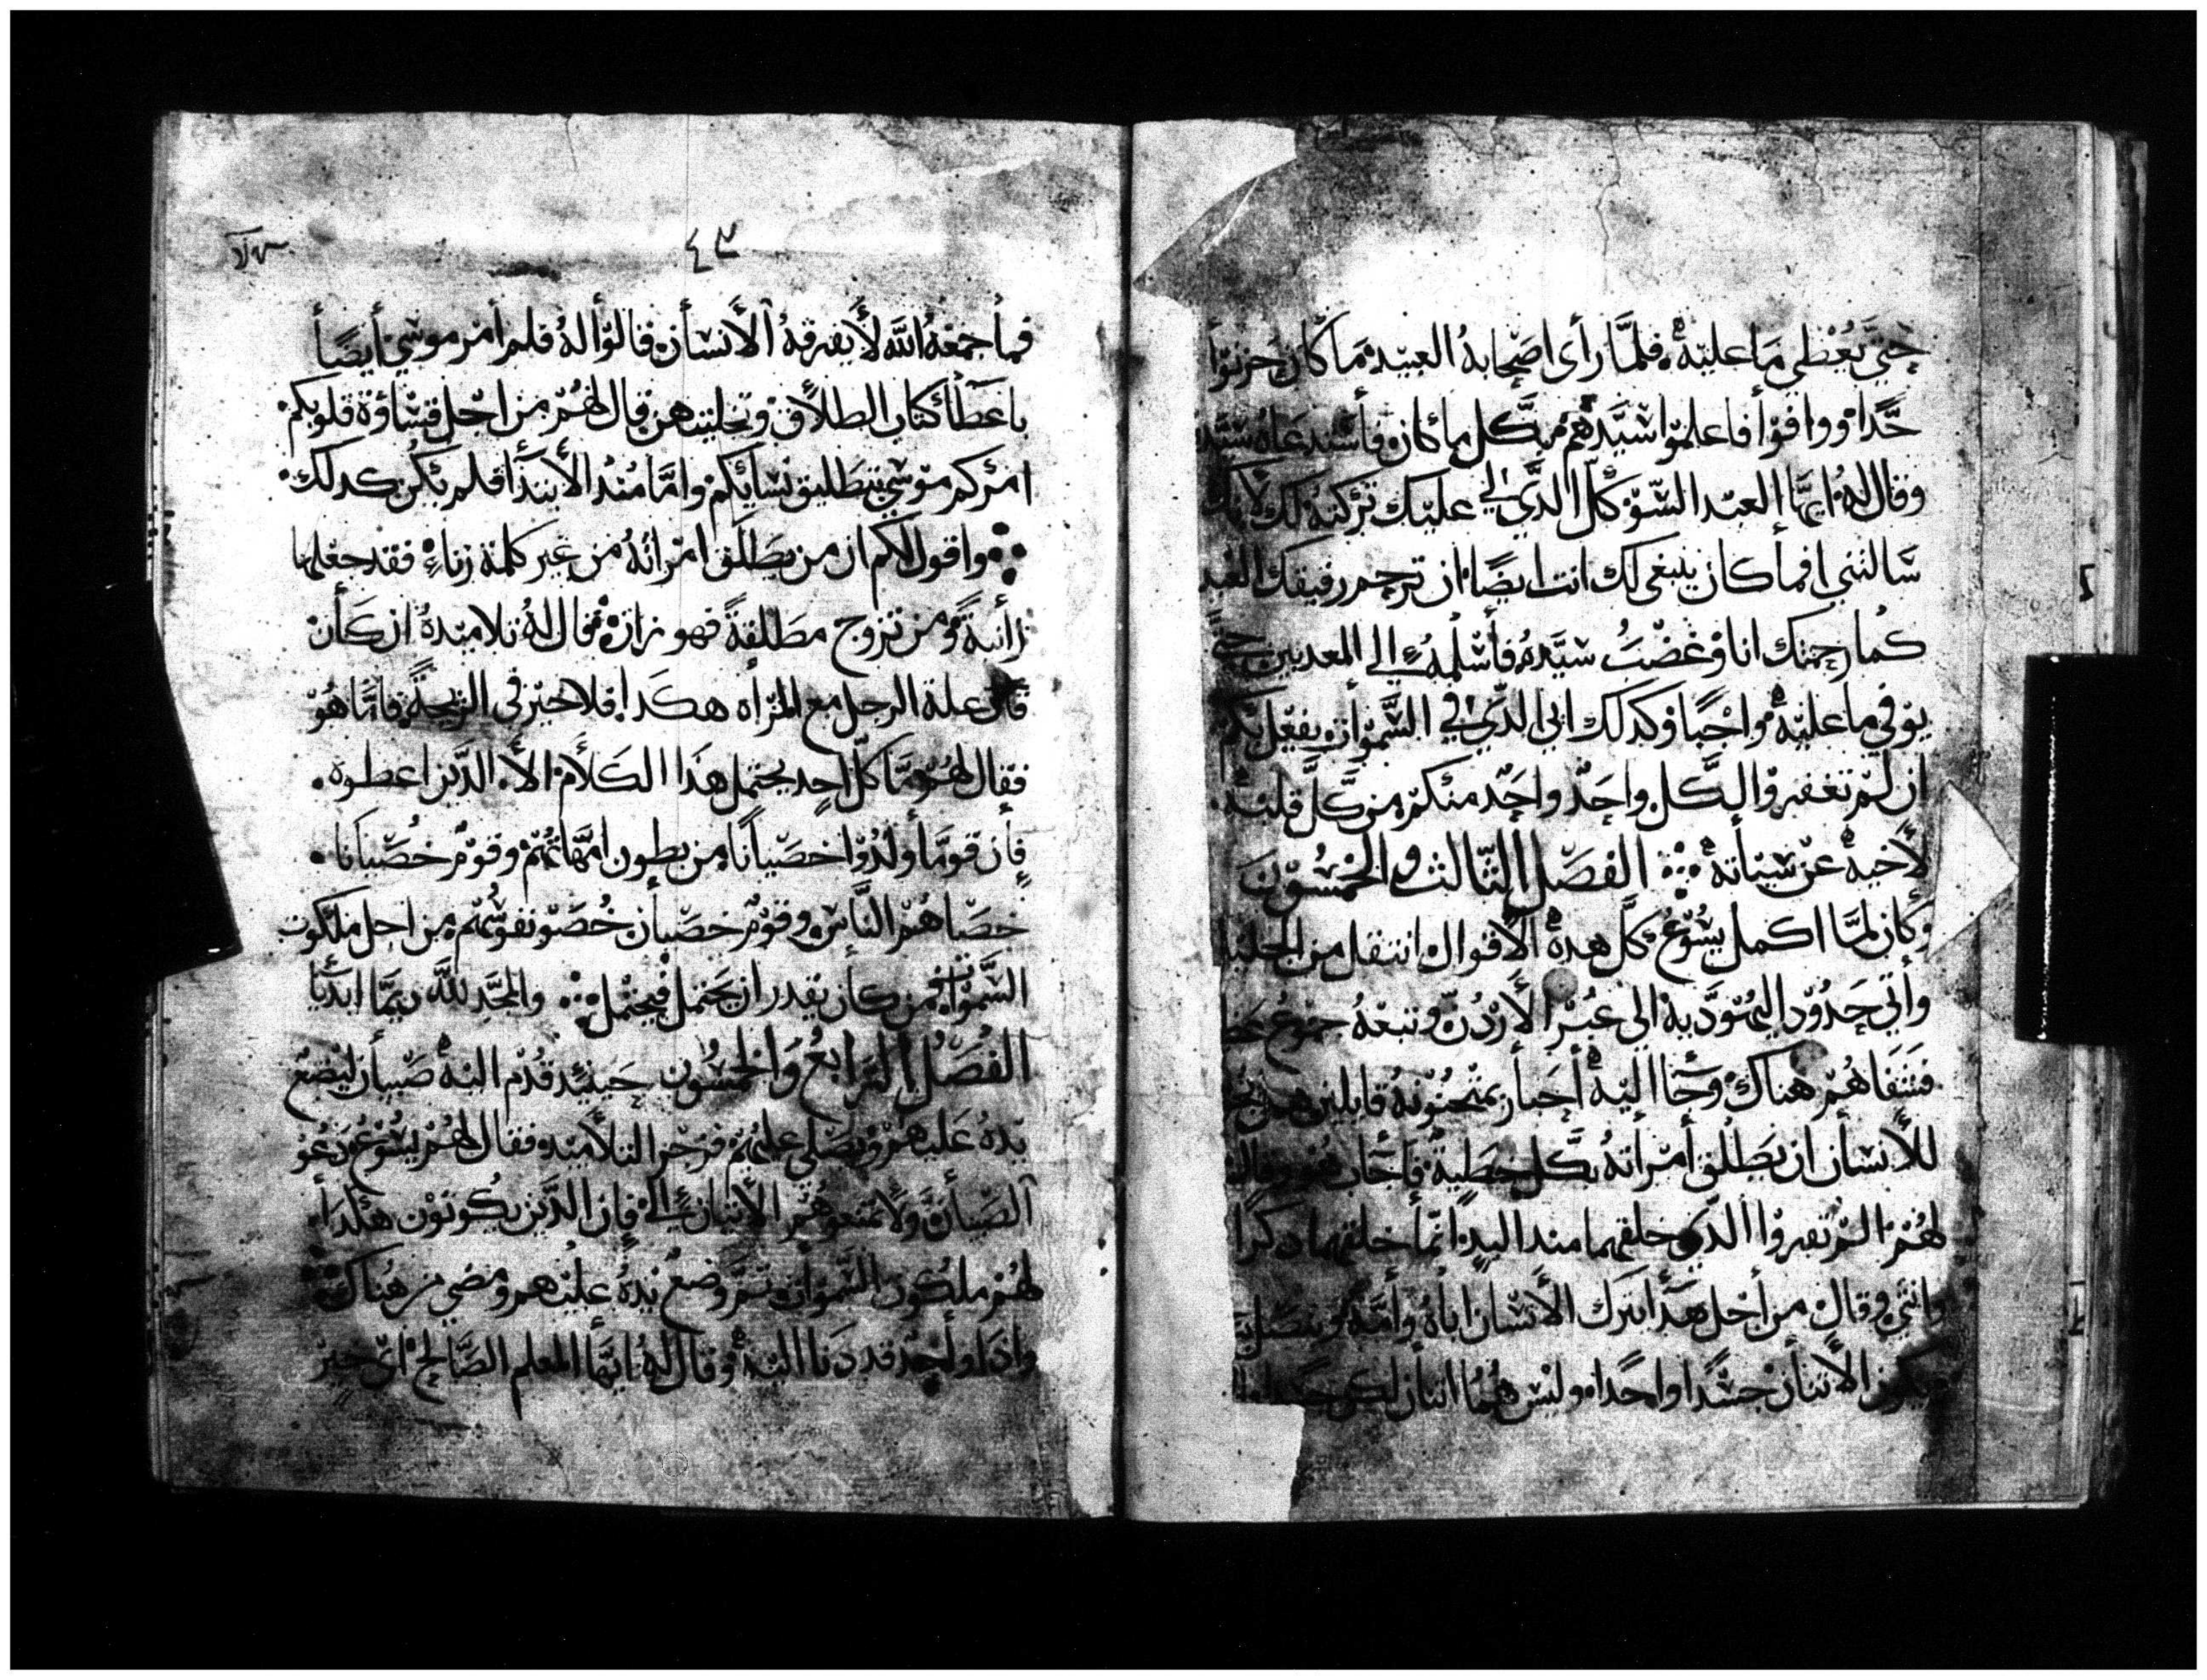 حتي يعطي ما عليه فلما رأى اصحابه العبيد ما كان حزنوا
جدا ووافوا فاعلموا سيدهم بكل ما كان فأستدعاه سيده
وقال له ايها العبد السو كل الدي لي عليك تركته لك لانك
سالتني افما كان ينبغي لك انت ايضا ان ترحم رفيقك العبد
كما رحمتك انا وغضب سيده فأسلمه الي المعدبين حتي
يوفي ما عليه واجبا وكدلك ابي الدي في السموات يفعل بكم
ان لم تغفروا الكل واحد واحد منكم من كل قلبه
لأخيه عن سيئاته الفصل التالت والخمسون
وكان لما اكمل يسوع كل هده الأقوال انتقل من الجليل
وأتي حدود اليهودية الى عبر الأردن وتبعه جموع
فشفاهم هناك وجاا اليه أحبار يمتحنونه قايلين هل
للأنسان ان يطلق أمراته بكل خطية فأجاب وقال
لهم الم تقروا الدي خلقهما مند البدإ انما خلقهما دكرا
وانثي وقال من أجل هدا يترك الأنسان اباه وأمه ويتصل
يكون الأتنان جسدا واحدا وليس هما اتنان لكن جسد
٤٣
فما جمعه الله لا يفرقه الأنسان فقالوا له فلم أمر موسي أيضا
باعطا كتاب الطلاق وتخليتهن قال لهم من اجل قساوة قلوبكم
امركم موسي بتطليق نسايكم واما مند الأبتدا فلم يكن كدلك
واقول لكم ان من يطلق امراته من غير كلمة زناء فقد جعلها
زانية ومن تزوج مطلقة فهو زان فقال له تلاميده ان كان
علة الرجل مع المرأه هكدا فلا خير في الزيجة فاما هو
فقال لهم ما كل أحد يحتمل هدا الكلام الا الدين اعطوه
فإن قوما ولدوا خصيانا من بطون امهاتهم وقوم خصيانا
خصاهم الناس وقوم خصيان خصو نفوسهم من اجل ملكوت
السموات فمن كان يقدر ان يحتمل فيحتمل والمجد لله ديما ابديا
الفصل الرابع والخمسون حينيد قدم اليه صبيان ليضع
يده عليهم ويصلي عليهم فزجر التلاميد فقال لهم يسوع دعو
الصبيان ولا تمنعوهم الأتيان الي فإن الدين يكونون هكدا
لهم ملكوت السموات تم وضع يده عليهم ومضي من هناك
وادا واحد قد دنا اليه وقال له ايها المعلم الصالح اي خير